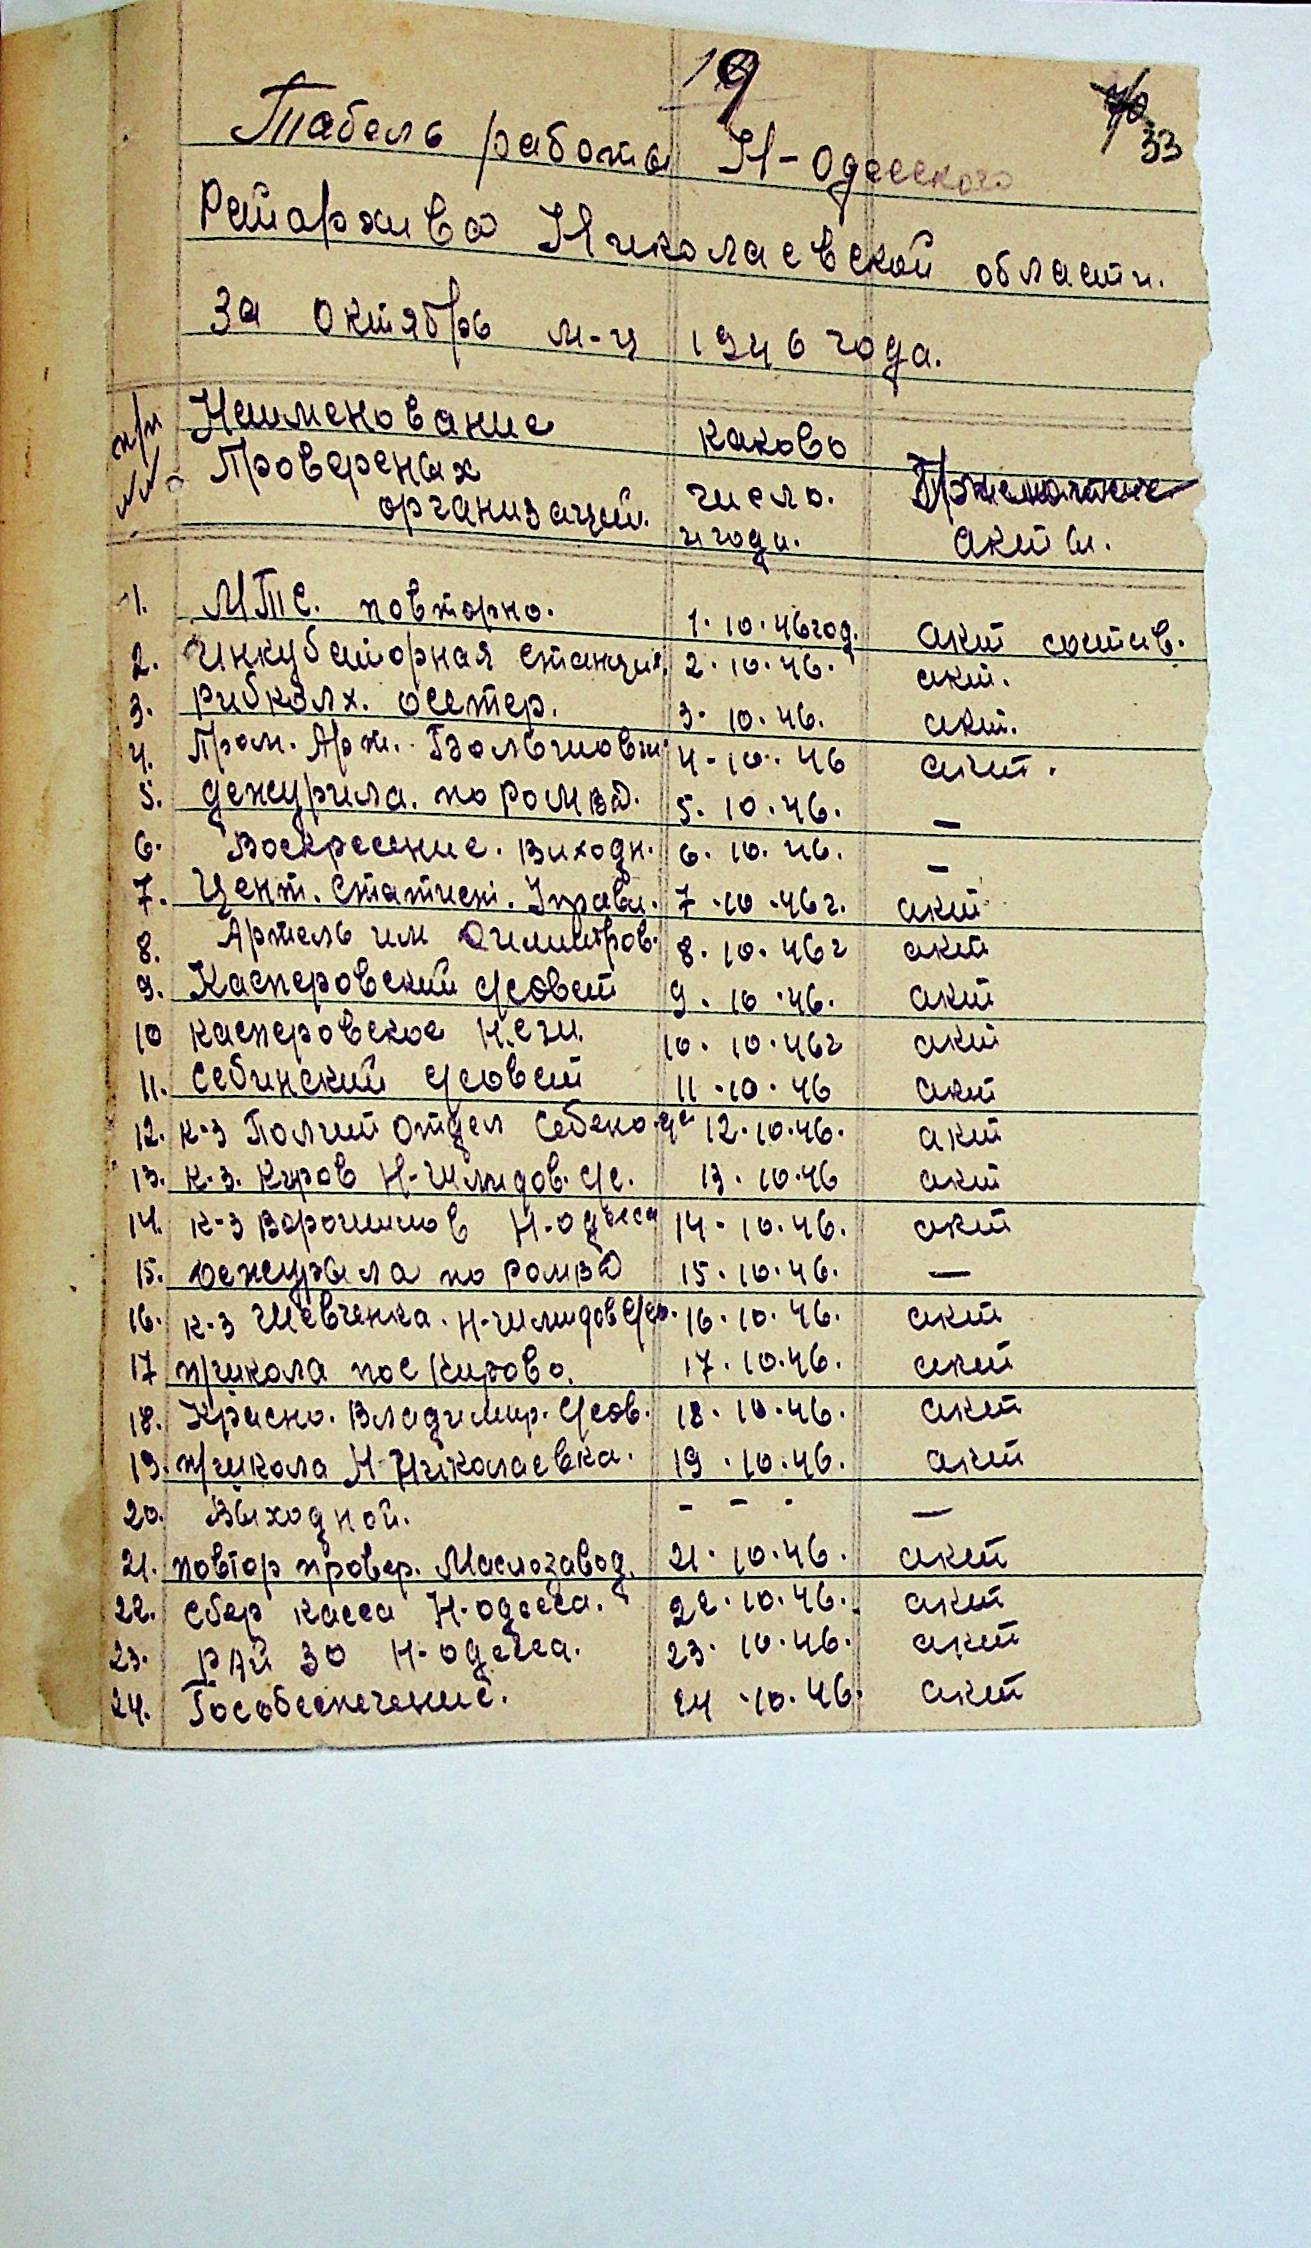 19
33
Табель работы Н-Одесского
Райархива Николаевской области.
За Октябрь м-ц 1946 года.
п/п
№№
Наименование
Провереных
организаций.
каково
число.
и года.
акты.
1. МТС. повторно. 1. 10. 46год. акт состав.
2. Инкубаторная станция. 2. 10. 46. акт.
3. рибколх. осетер. 3. 10. 46. акт.
4. Пром. Арт. Большовик 4-10. 46 акт.
5. дежурила. по РОМВД. 5. 10. 46. —
6. Воскресение. Виходн. 6. 10. 46. —
7. Цент. Статист. Управл. 7. 10. 46г. акт
8. Артель им Димитров. 8. 10. 46г акт
9. Касперовский с/совет 9. 10. 46. акт
10 касперовское Н.с.ш. 10. 10. 46г акт
11. Себинский с/совет 11. 10. 46 акт
12. к-з Полит отдел Себено 12. 10. 46. акт
13. к-з. Киров Н-Шмидов. с/с. 13. 10. 46 акт
14. к-з Ворошилов Н-одесса 14. 10. 46. акт
15. дежурыла по РОМВД 15. 10. 46. —
16. к-з Шевченка. Н-шмидов с/со. 16. 10. 46. акт
17 н/школа пос Кирово. 17. 10. 46. акт
18. Красно. Владимир. с/сов. 18. 10. 46. акт
19. н/школа Н-Николаевка. 19. 10. 46. акт
20. Выходной. - - - —
21. повтор провер. Маслозавод. 21. 10. 46. акт
22. сбер касса Н-одесса. 22. 10. 46. акт
23. РАЙ ЗО Н-одесса. 23. 10. 46. акт
24. Гособеспечение. 24. 10. 46. акт